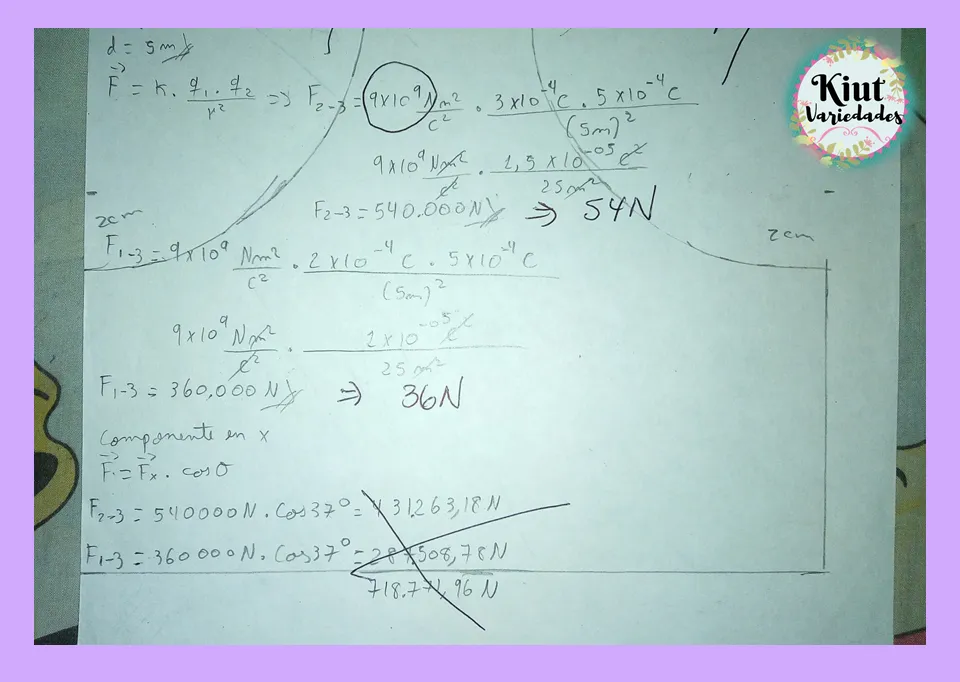 d = 5m
F = K . q1 . q2 / r² => F2-3 = 9x10⁹ Nm²/c² . 3x10⁻⁴c . 5x10⁻⁴c / (5m)²
9x10⁹ Nm²/c² . 1,5x10⁻⁰⁵ c² / 25m²
F2-3 = 540.000N => 54N
2cm
2cm
F1-3 = 9x10⁹ Nm²/c² . 2x10⁻⁴c . 5x10⁻⁴c / (5m)²
9x10⁹ Nm²/c² . 2x10⁻⁰⁵ c² / 25m²
F1-3 = 360,000N => 36N
componente en x
F = Fx . cosθ
F2-3 = 540000N . Cos37° = 431.263,18N
F1-3 = 360000N. Cos37° = 287.508,78N
718.771,96 N
Kiut
Variedades